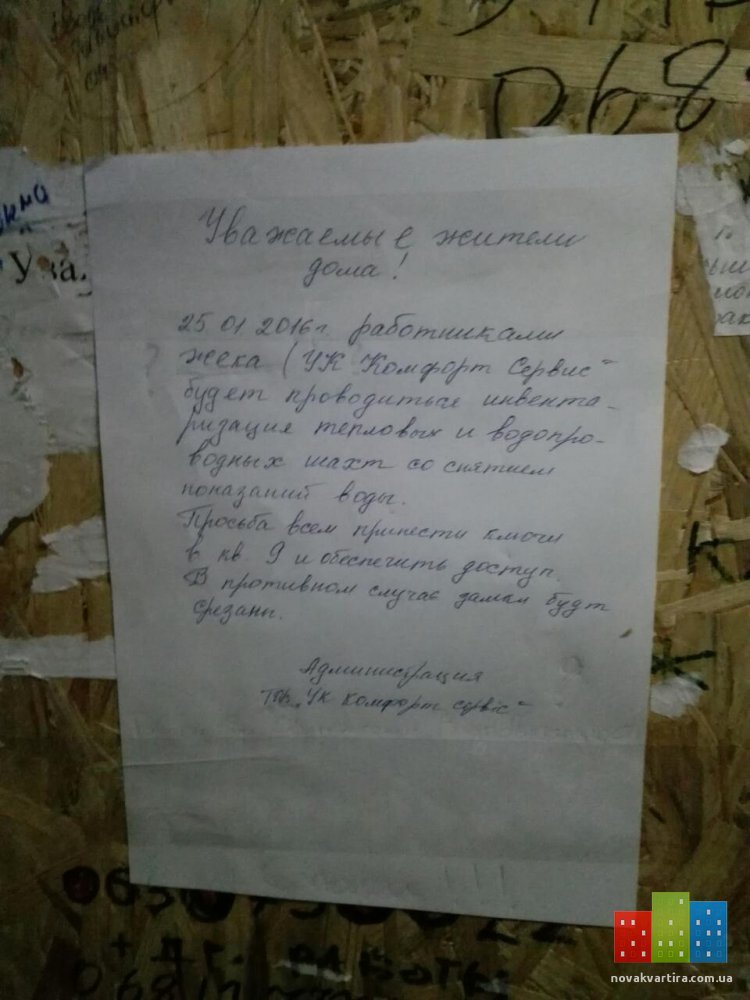 068
Ува
Уважаемые жители
дома!
25.01.2016г. работниками
жека (УК Комфорт Сервис"
будет проводиться инвента-
ризация тепловых и водопро-
водных шахт со снятием
показаний воды.
Просьба всем принести ключи
в кв 9 и обеспечить доступ.
В противном случае замки будт
срезаны.
Администрация
ТОВ „УК Комфорт сервіс"
novakvartira.com.ua